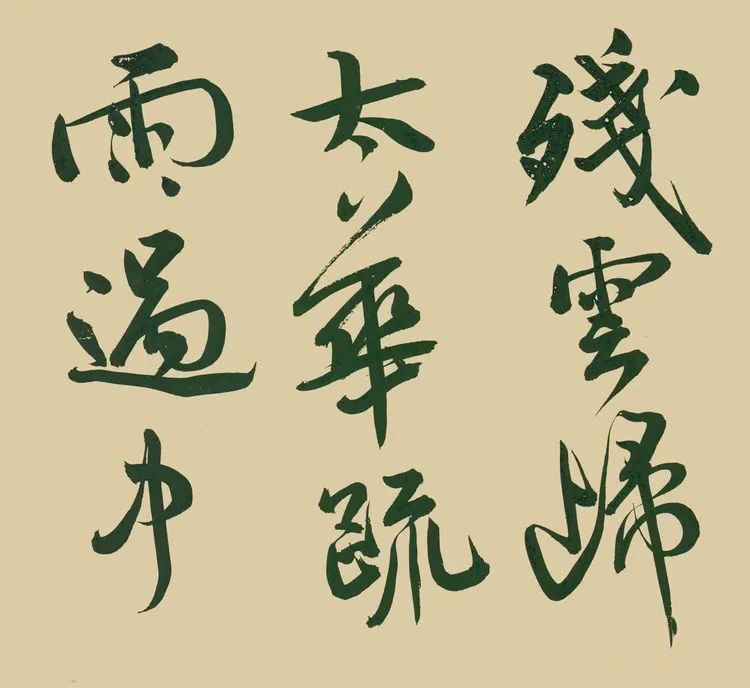 殘雲歸
太華疏
雨過中